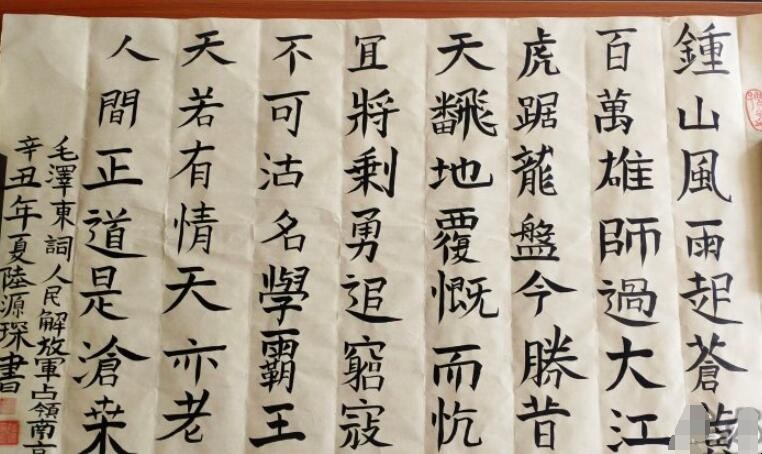 鍾山風雨起蒼
百萬雄師過大江
虎踞龍盤今勝昔
天飜地覆慨而忼
宜將剩勇追窮寇
不可沽名學霸王
天若有情天亦老
人間正道是滄桒
毛澤東詞人民解放軍占領南京
辛丑年夏陸源琛書